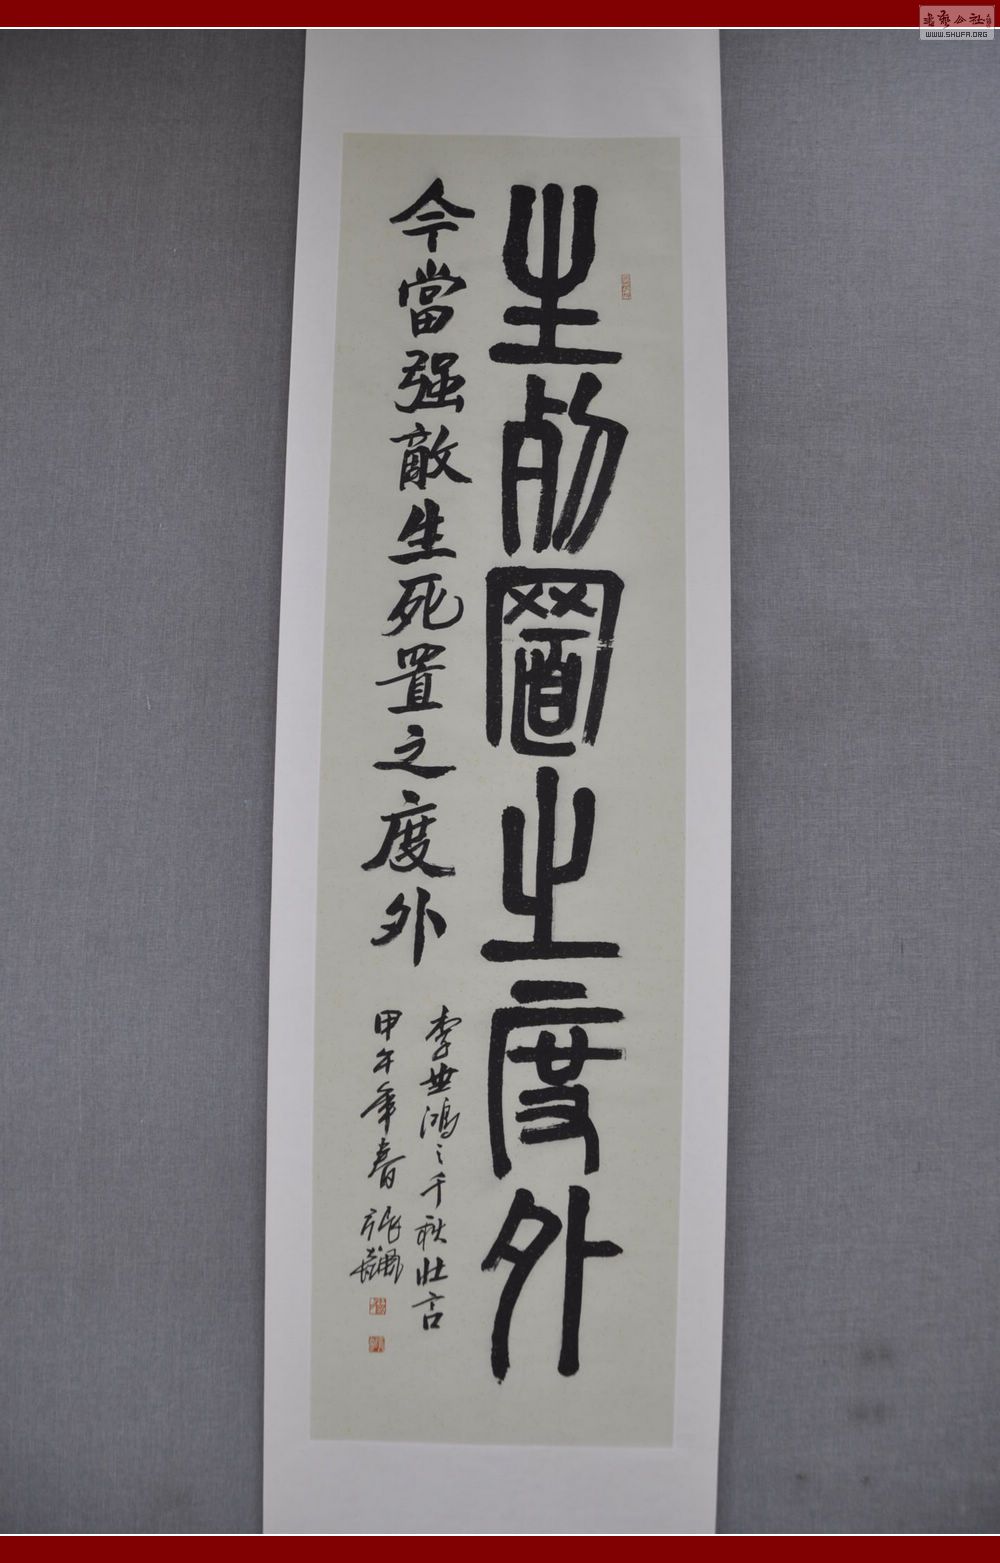 生死置之度外
今當强敵生死置之度外
李世鴻之千秋壯言
甲午年春
书艺公社
WWW.SHUFA.ORG